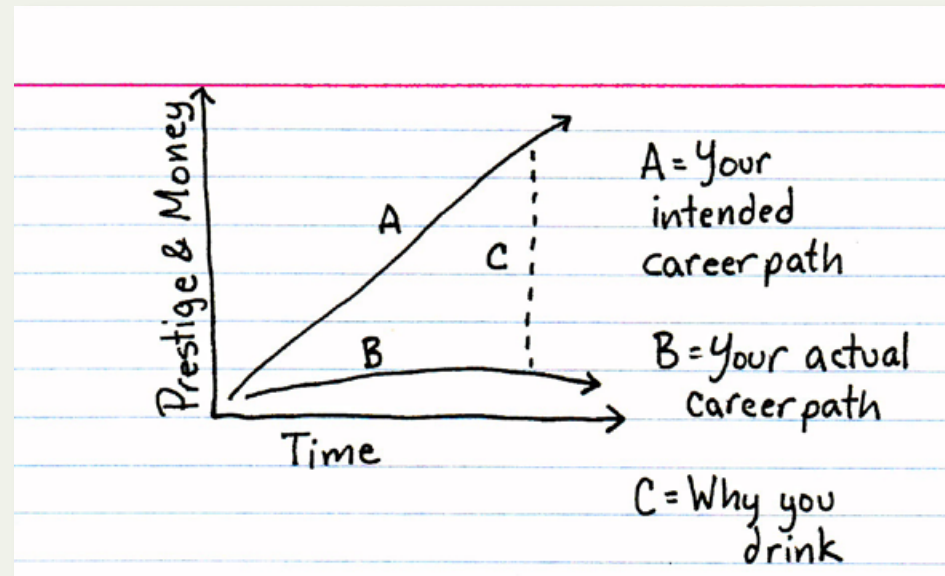 Prestige & Money
A
B
C
Time
A = Your
intended
career path
B = Your actual
career path
C = Why you
drink